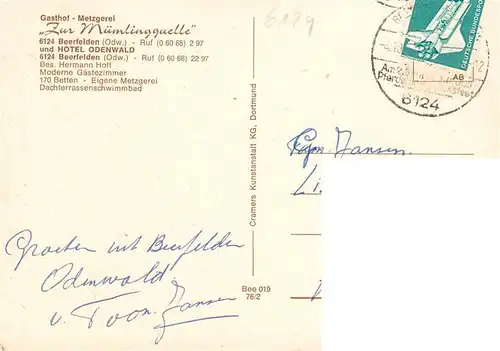 Gasthof - Metzgerei
„Zur Mümlingquelle"
6124 Beerfelden (Odw.) - Ruf (0 60 68) 2 97
und HOTEL ODENWALD
6124 Beerfelden (Odw.) - Ruf (0 60 68) 22 97
Bes. Hermann Hoff
Moderne Gästezimmer
170 Betten - Eigene Metzgerei
Dachterrassenschwimmbad
6124
DEUTSCHE BUNDESPOST
12
AB
6124
Cramers Kunstanstalt KG, Dortmund
Fam. Jansen.
Groeten uit Beerfelden
Odenwald.
v. Toon Jansen
Bee 019
76/2